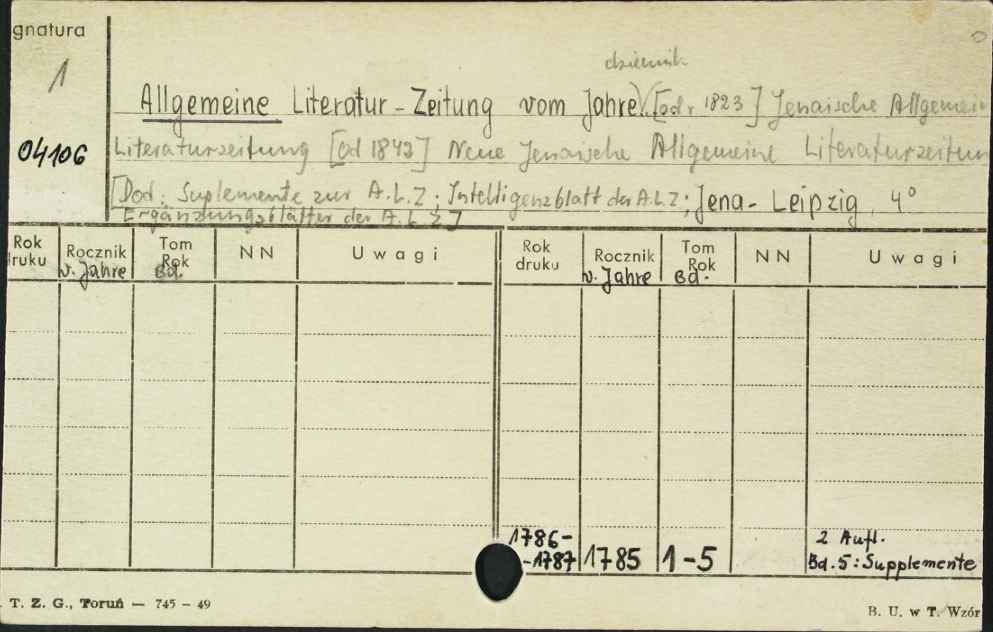 gnatura
1
dziennik
Allgemeine Literatur-Zeitung vom Jahre [od r 1823] Jenaische Allgemein
04106
Literaturzeitung [od 1842] Neue Jenaische Allgemeine Literaturzeitun
[Dod: Suplemente zur A.L.Z; Intelligenzblatt der A.L.Z; Jena-Leipzig, 4°
Ergänzungsblätter der A.L.Z]
Rok druku Rocznik v. Jahre Tom Rok Bd. NN Uwagi Rok druku Rocznik v. Jahre Tom Rok Bd. NN Uwagi
1786-
-1787 1785 1-5 2 Aufl.
Bd. 5: Supplemente
T. Z. G., Toruń — 745 – 49
B. U. w T. Wzór